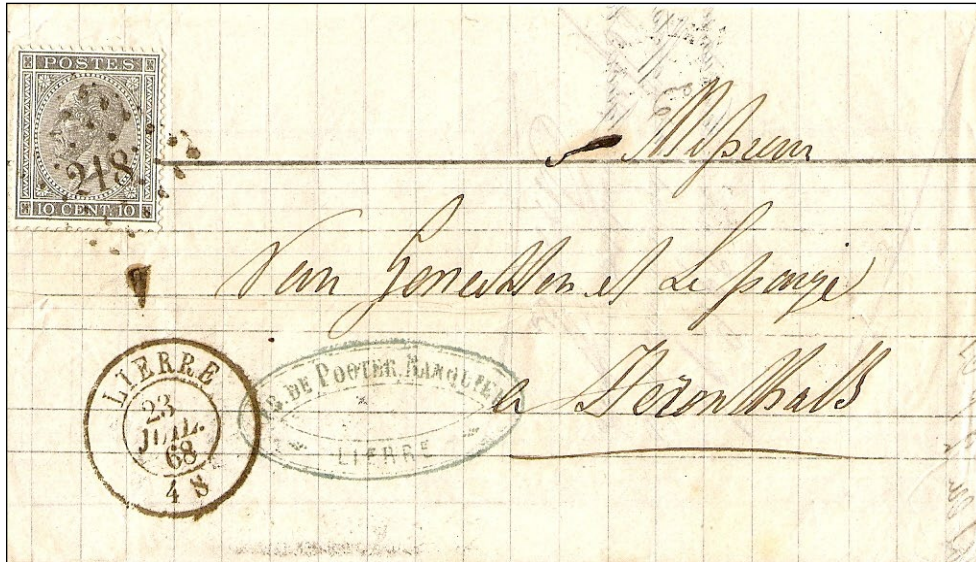 POSTES
218
10 CENT. 10
Messieurs
Van Genechten et Le paige
à Herenthals
LIERRE
23
JUIL.
68
4 S
DE POOTER, BANQUIER
LIERRE